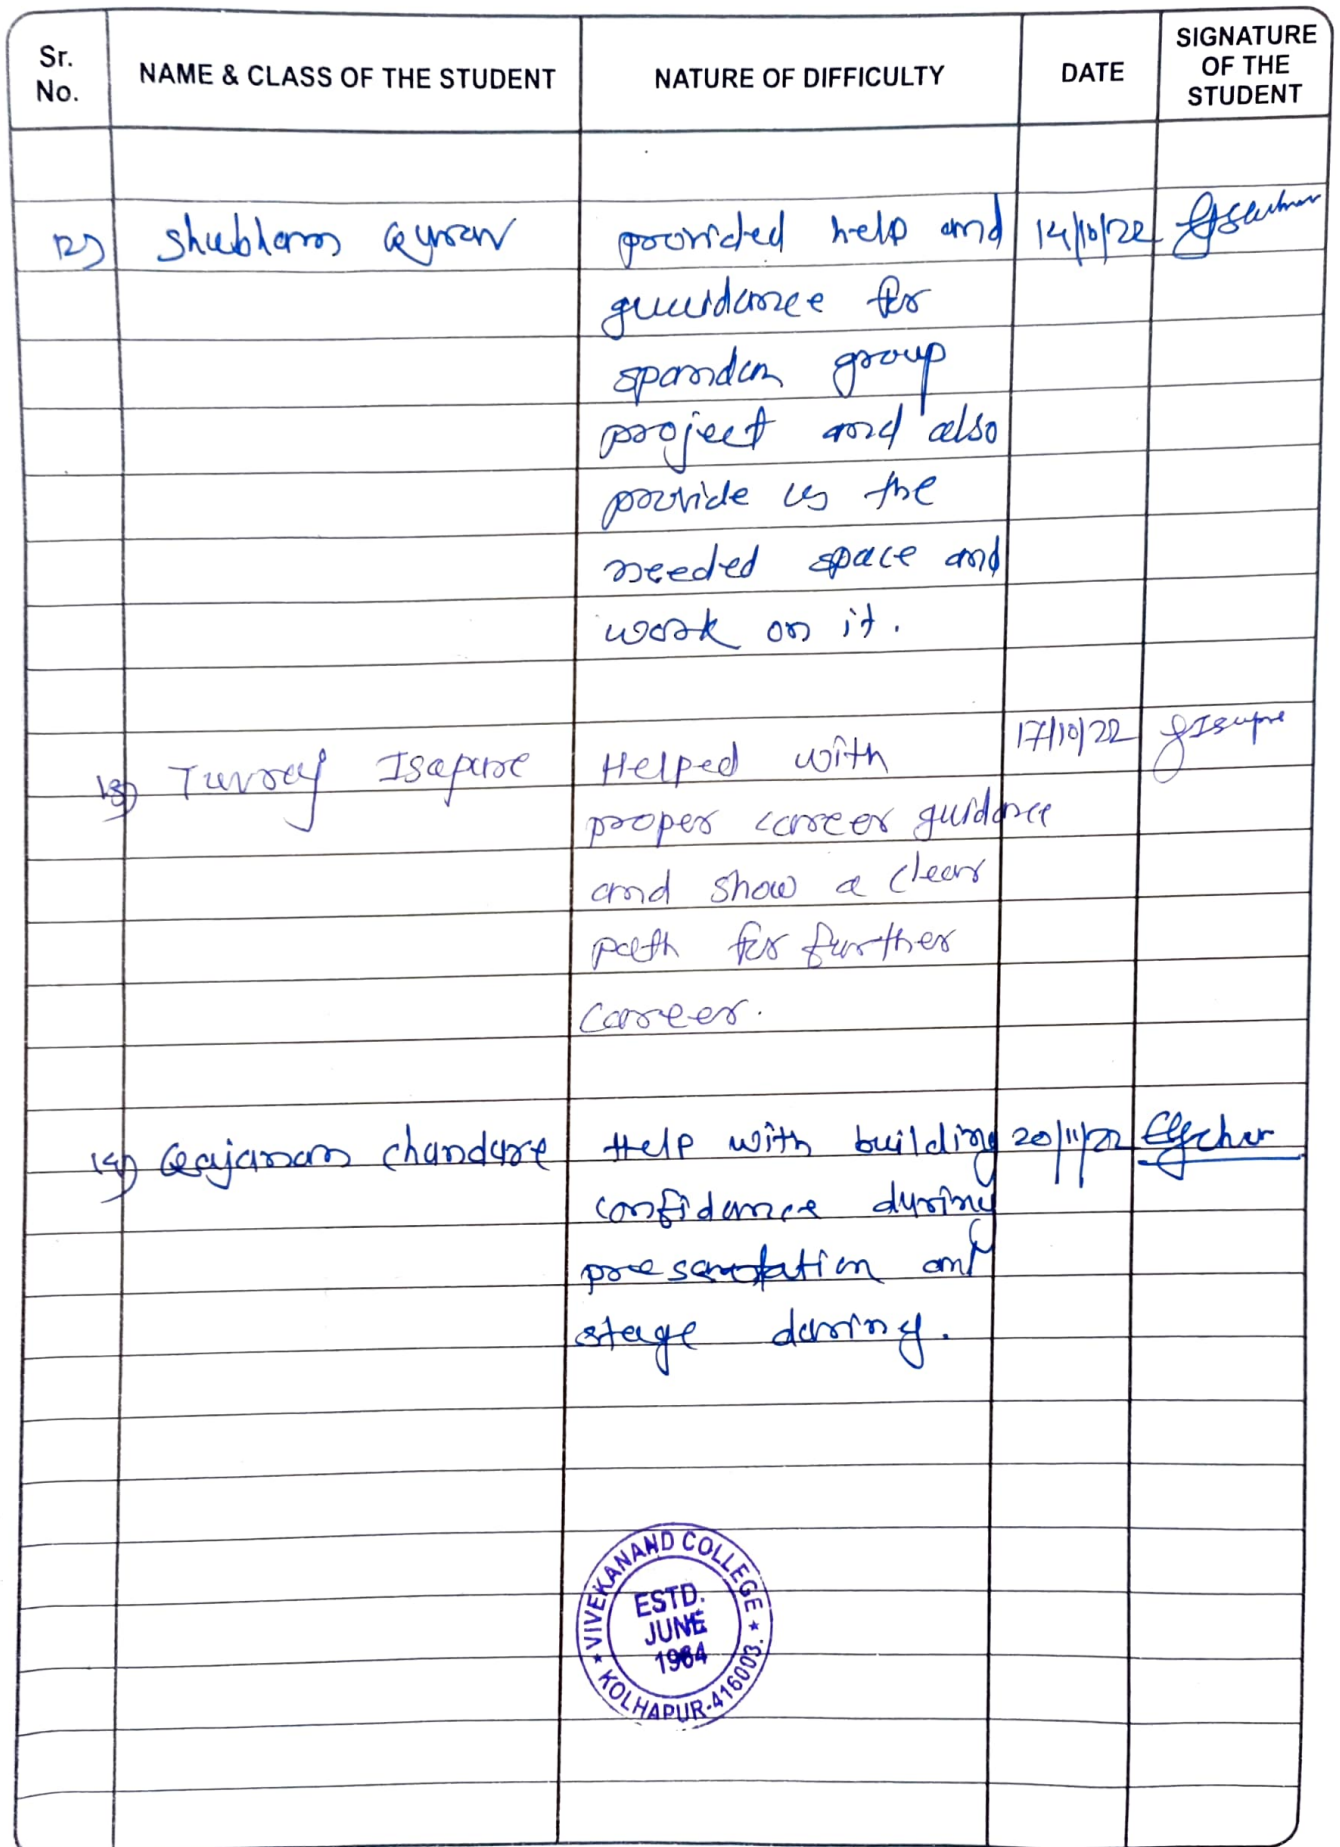 Sr. No.
NAME & CLASS OF THE STUDENT
NATURE OF DIFFICULTY
DATE
SIGNATURE OF THE STUDENT
12) Shubham provided help and 14/10/22
guuidance for
spandan group
project and also
provide us the
needed space and
work on it.
13) Yuvraj Isapure Helped with 17/10/22
proper career guidance
and show a clear
path for further
career.
14) Gajanan chandure Help with building 20/11/22
confidance during
presentation and
stage daring.
VIVEKANAND COLLEGE
ESTD.
JUNE
1964
KOLHAPUR-416003.